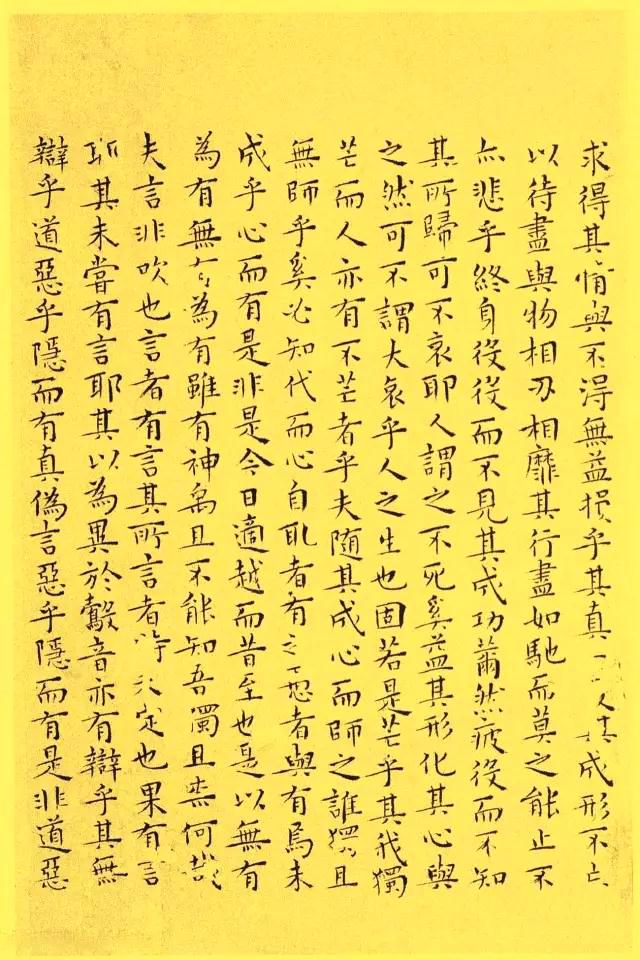 求得其情與不得無益損乎其真其成形不亡
以待盡與物相刃相靡其行盡如馳而莫之能止不
亦悲乎終身役役而不見其成功薾然疲役而不知
其所歸可不哀耶人謂之不死奚益其形化其心與
之然可不謂大哀乎人之生也固若是芒乎其我獨
芒而人亦有不芒者乎夫隨其成心而師之誰獨且
無師乎奚必知代而心自取者有之愚者與有焉未
成乎心而有是非是今日適越而昔至也是以無有
為有無有為有雖有神禹且不能知吾獨且柰何哉
夫言非吹也言者有言其所言者特未定也果有言
耶其未嘗有言耶其以為異於鷇音亦有辯乎其無
辯乎道惡乎隱而有真偽言惡乎隱而有是非道惡